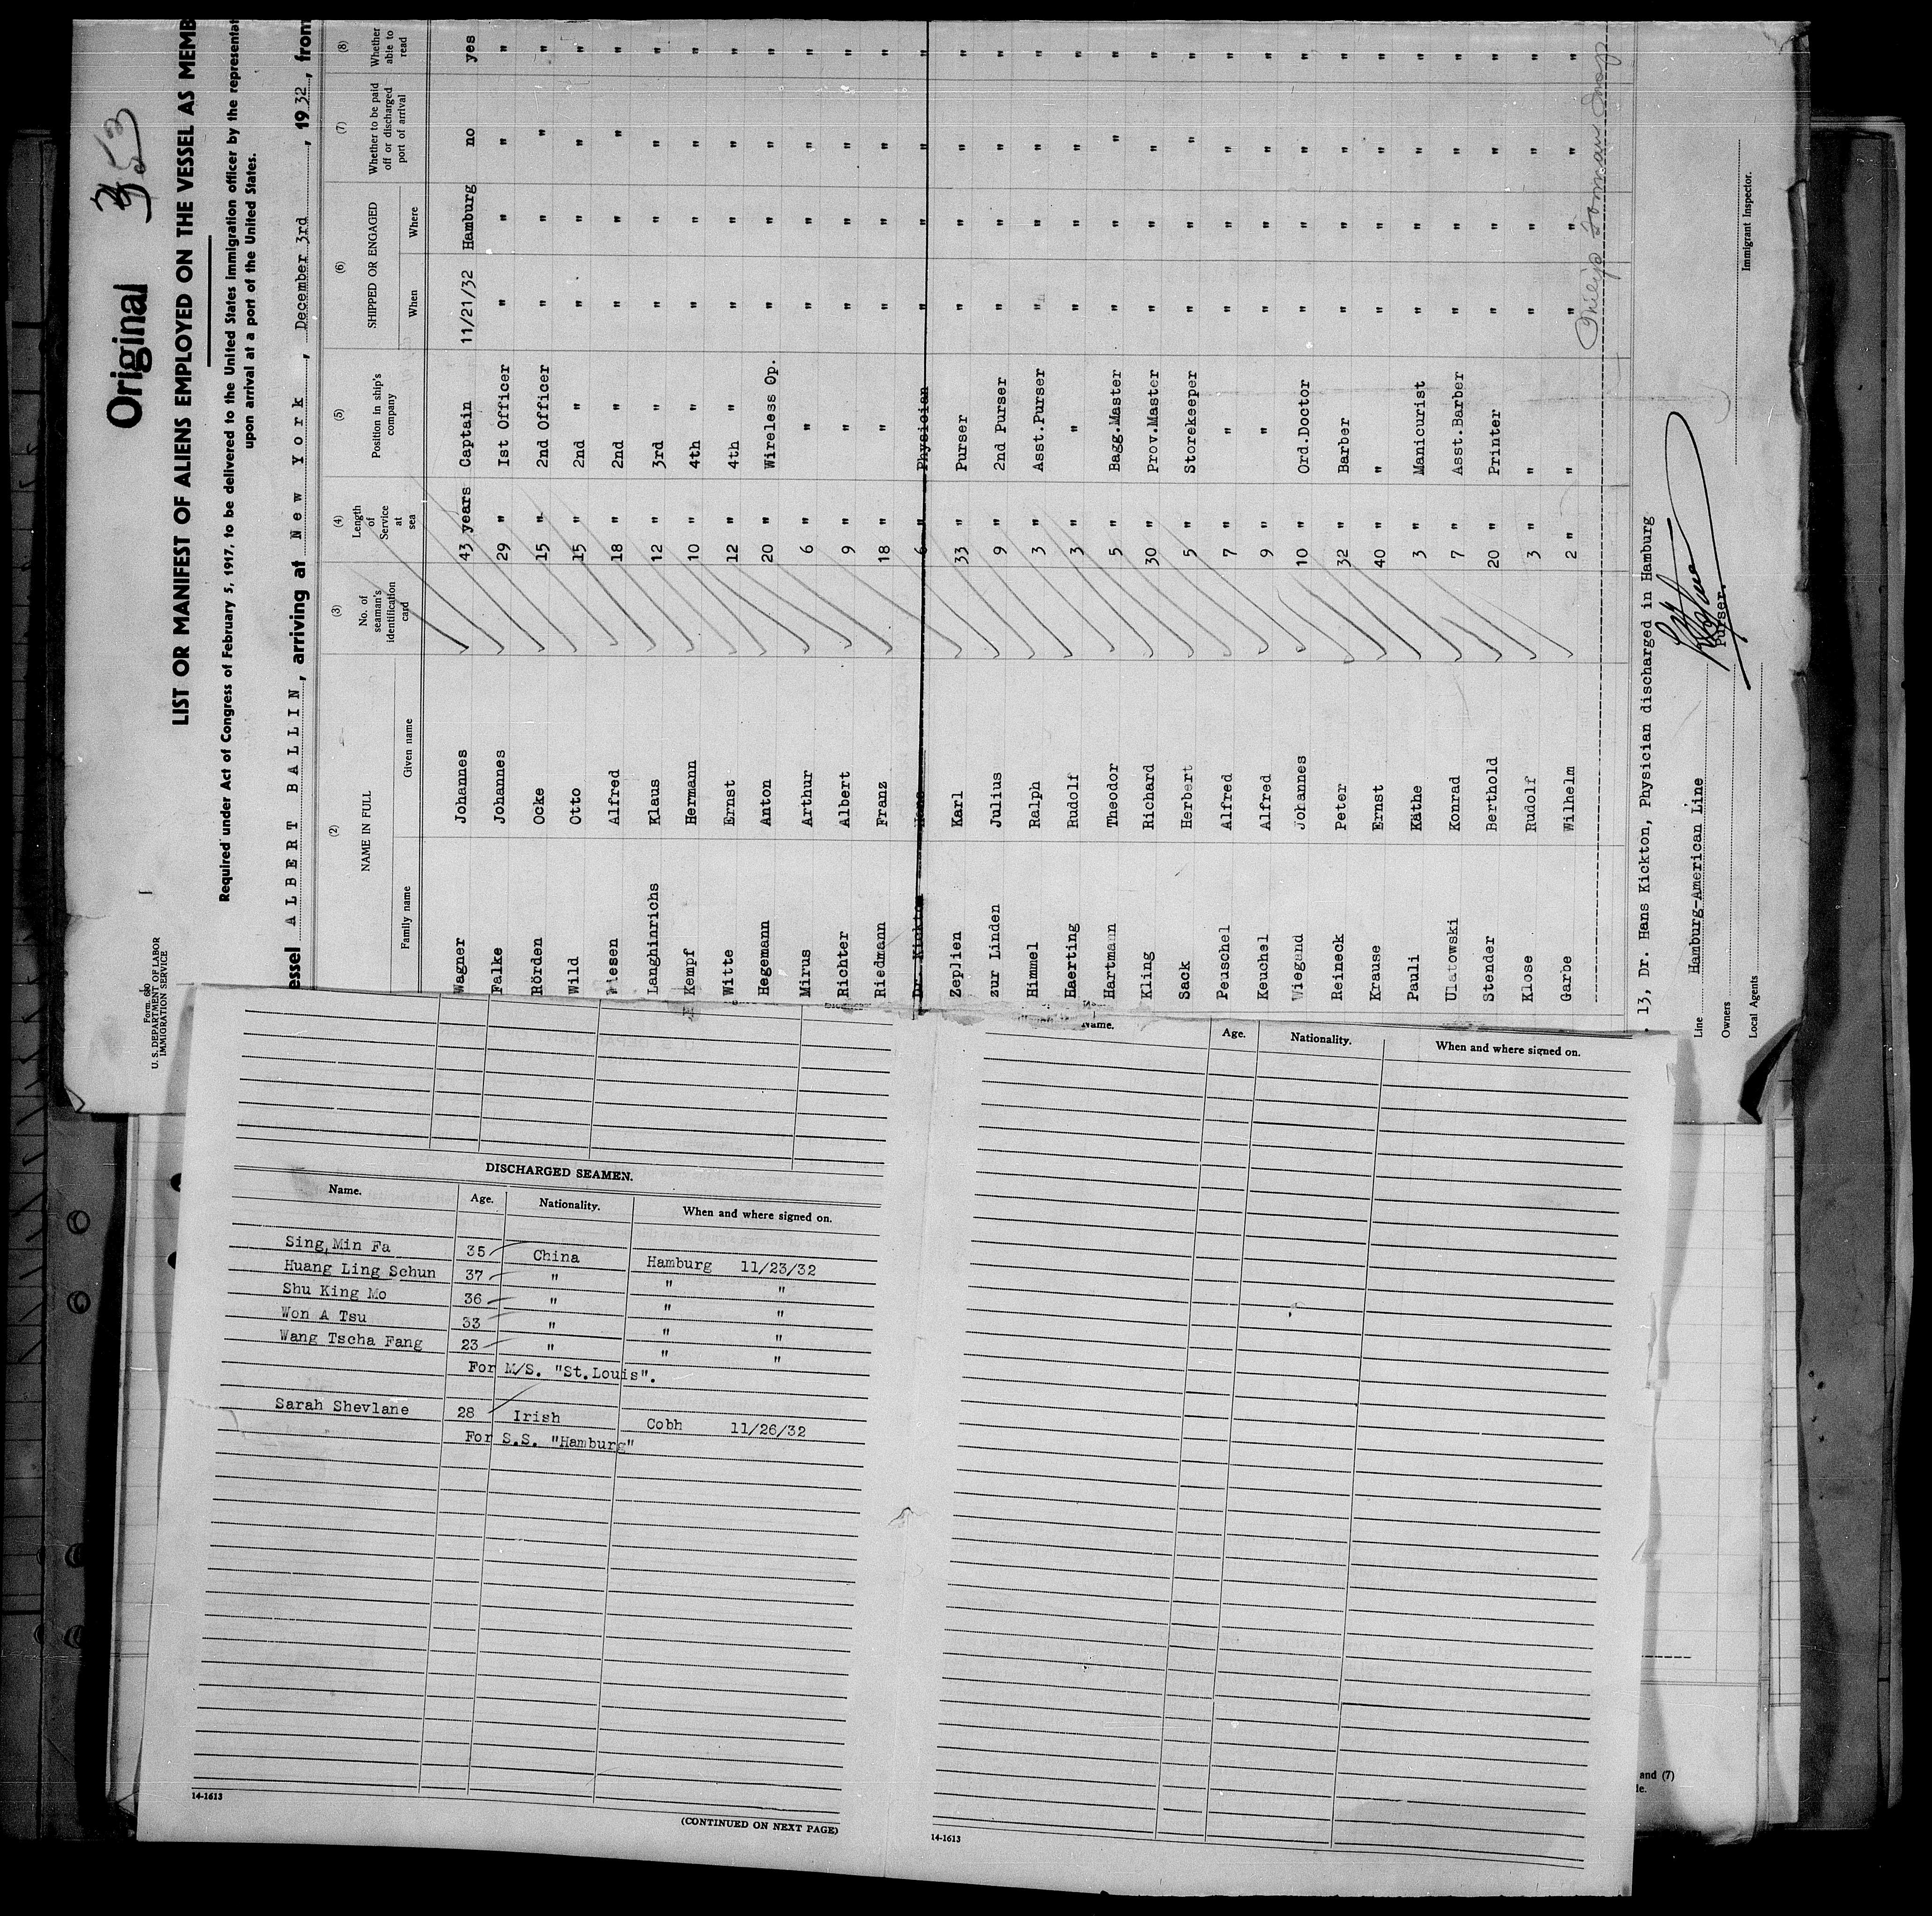 Form 680
U. S. DEPARTMENT OF LABOR
IMMIGRATION SERVICE
Original
LIST OR MANIFEST OF ALIENS EMPLOYED ON THE VESSEL AS MEMB
Required under Act of Congress of February 5, 1917, to be delivered to the United States immigration officer by the representa
upon arrival at a port of the United States.
essel ALBERT BALLIN, arriving at New York, December 3rd, 1932, from
(2) (3) (4) (5) (6) (7) (8)
NAME IN FULL
Family name Given name
No. of seaman's identification card
Length of Service at sea
Position in ship's company
SHIPPED OR ENGAGED
When Where
Whether to be paid off or discharged port of arrival
Whether able to read
Wagner Johannes 43 years Captain 11/21/32 Hamburg no yes
Falke Johannes 29 " 1st Officer " " " "
Rörden Ocke 15 " 2nd Officer " " " "
Wild Otto 15 " 2nd " " " " "
Wiesen Alfred 18 " 2nd " " " " "
Langhinrichs Klaus 12 " 3rd " " " " "
Kempf Hermann 10 " 4th " " " " "
Witte Ernst 12 " 4th " " " " "
Hegemann Anton 20 " Wireless Op. " " " "
Mirus Arthur 6 " " " " " "
Richter Albert 9 " " " " " "
Riedmann Franz 18 " " " " " "
Dr. Kickton Hans 6 " Physician " " " "
Zeplien Karl 33 " Purser " " " "
zur Linden Julius 9 " 2nd Purser " " " "
Himmel Ralph 3 " Asst.Purser " " " "
Haerting Rudolf 3 " " " " " "
Hartmann Theodor 5 " Bagg.Master " " " "
Kling Richard 30 " Prov.Master " " " "
Sack Herbert 5 " Storekeeper " " " "
Peischel Alfred 7 " " " " " "
Keuchel Alfred 9 " " " " " "
Wiegand Johannes 10 " Ord.Doctor " " " "
Reineck Peter 32 " Barber " " " "
Krause Ernst 40 " " " " " "
Pauli Käthe 3 " Manicurist " " " "
Ulatowski Konrad 7 " Asst.Barber " " " "
Stender Berthold 20 " Printer " " " "
Klose Rudolf 3 " " " " " "
Garbe Wilhelm 2 " " " " " "
13, Dr. Hans Kickton, Physician discharged in Hamburg
Line Hamburg-American Line
Purser.
Owners
Local Agents
Immigrant Inspector.
DISCHARGED SEAMEN.
Name. Age. Nationality. When and where signed on.
Sing,Min Fa 35 China Hamburg 11/23/32
Huang Ling Schun 37 " " "
Shu King Mo 36 " " "
Won A Tsu 33 " " "
Wang Tscha Fang 23 " " "
For M/S. "St.Louis".
Sarah Shevlane 28 Irish Cobh 11/26/32
For S.S. "Hamburg"
14-1613
(CONTINUED ON NEXT PAGE)
Name. Age. Nationality. When and where signed on.
14-1613
and (7)
le.